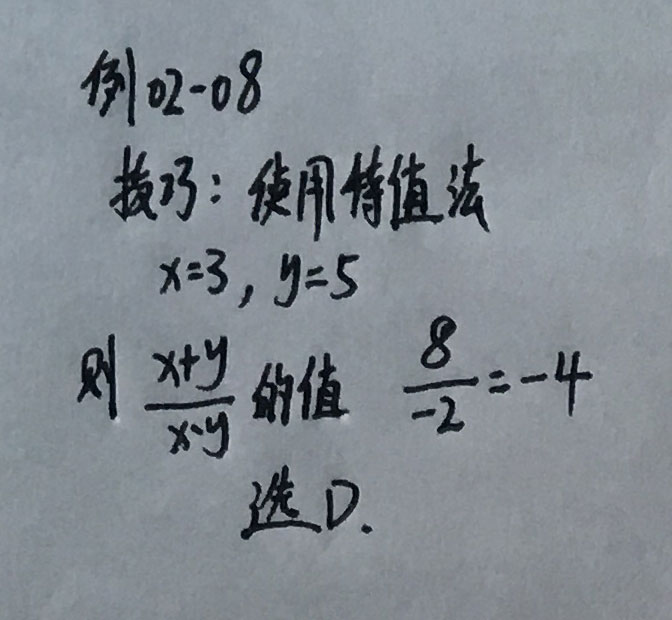 例02-08
技巧：使用特值法
x=3, y=5
则 (x+y)/(x-y) 的值 8/-2 = -4
选D.